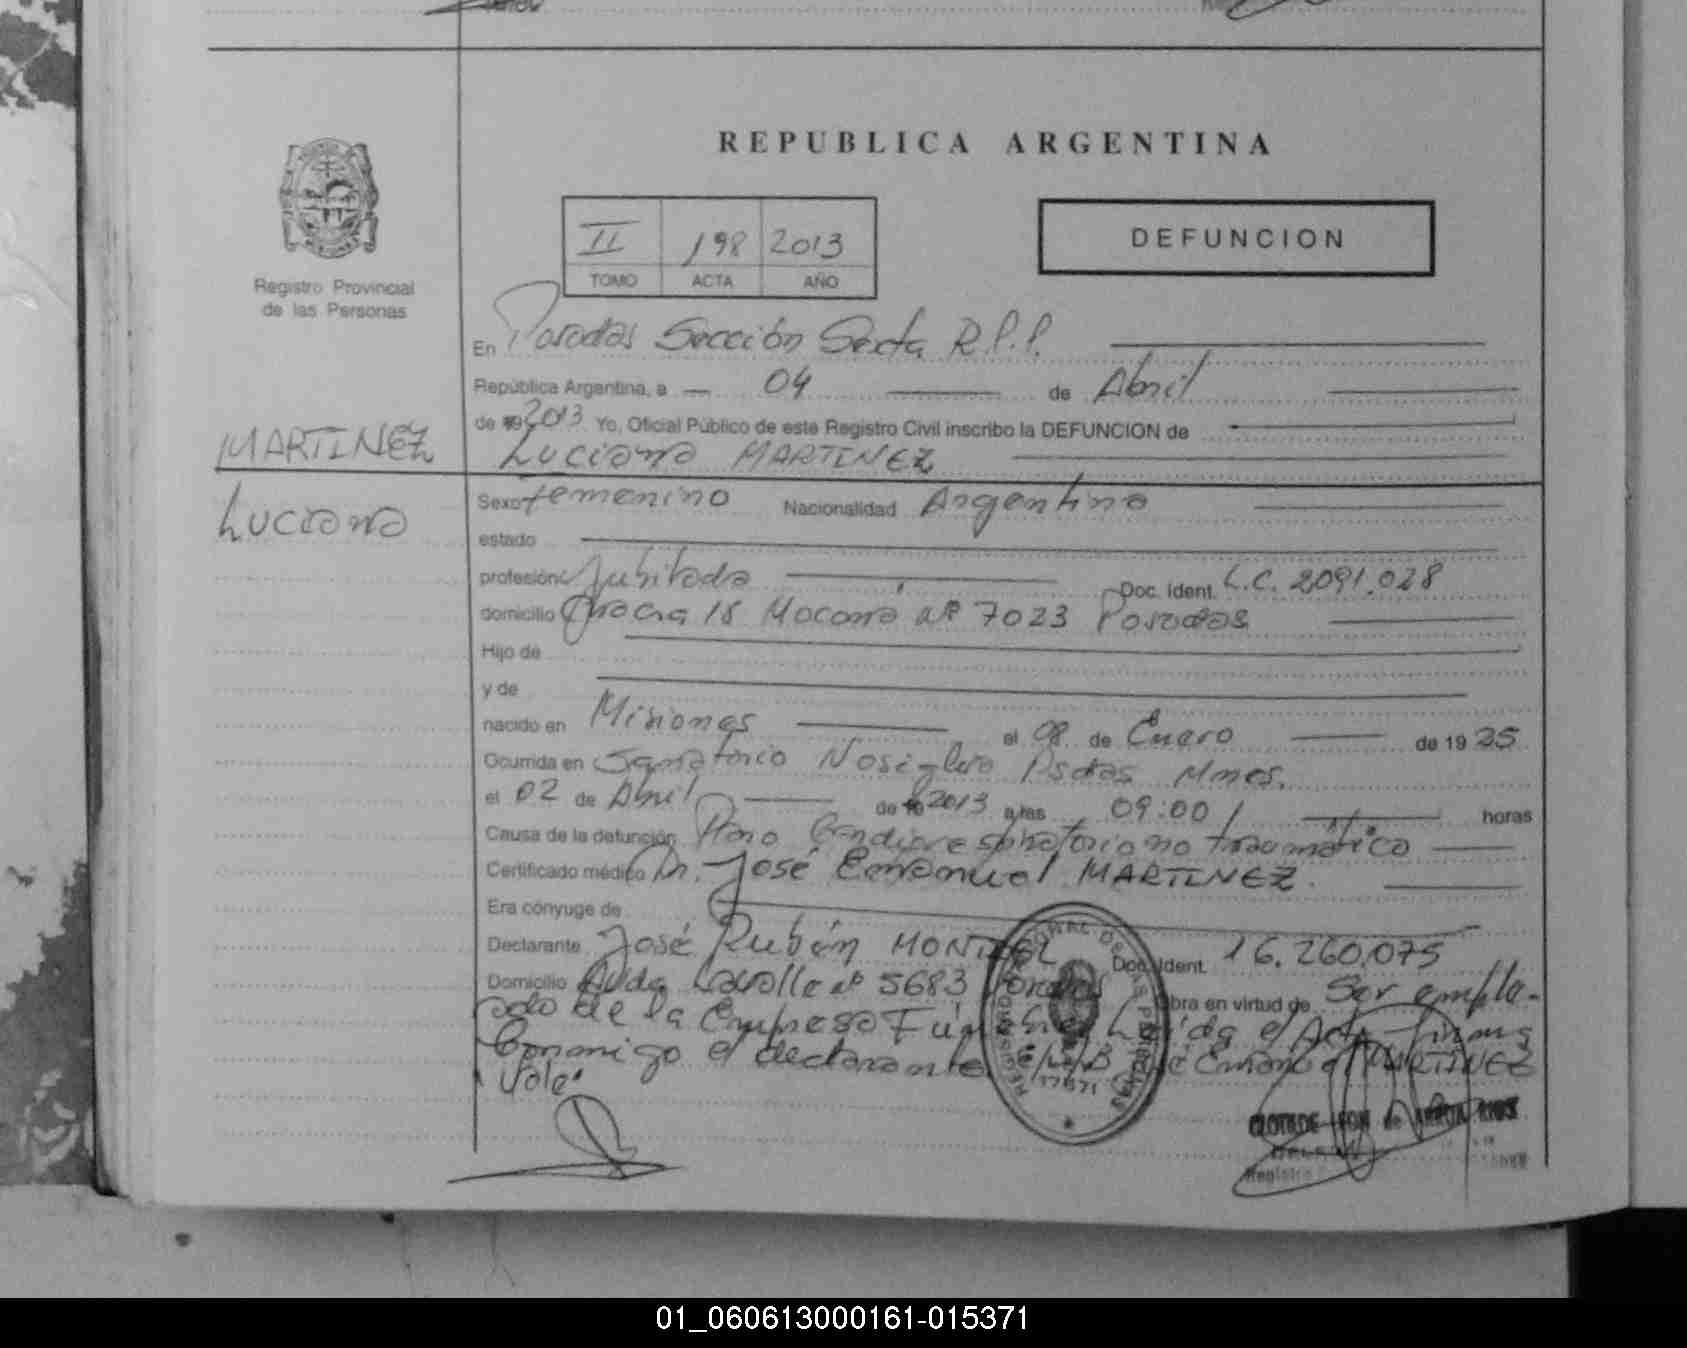 REPUBLICA ARGENTINA
II 198 2013
TOMO ACTA AÑO
DEFUNCION
Registro Provincial
de las Personas
En Posadas Sección Sexta R.P.P.
República Argentina, a 04 de Abril
de 2013 Yo, Oficial Público de este Registro Civil inscribo la DEFUNCION de
MARTINEZ
Luciana MARTINEZ
Luciana
Sexo femenino Nacionalidad Argentina
estado
profesión Jubilada Doc. Ident. L.C. 2091.028
domicilio Chacra 18 Mocona Nº 7023 Posadas
Hijo de
y de
nacido en Misiones el 08 de Enero de 1935
Ocurrida en Sanatorio Nosiglia Psdas Mnes.
el 02 de Abril de 2013 a las 09:00 horas
Causa de la defunción Paro Cardiorespiratorio no traumático
Certificado médico Dr. José Emanuel MARTINEZ.
Era cónyuge de
Declarante José Rubén MONTIEL Doc. Ident. 16.260.075
Domicilio Avda Lavalle Nº 5683 Posadas Obra en virtud de Ser emplea-
ado de la Empresa Fúnebre Leída el Acta firma
Conmigo el declarante José Emanuel MARTINEZ
Vale
CLOTILDE LEON de
Registro
01_060613000161-015371